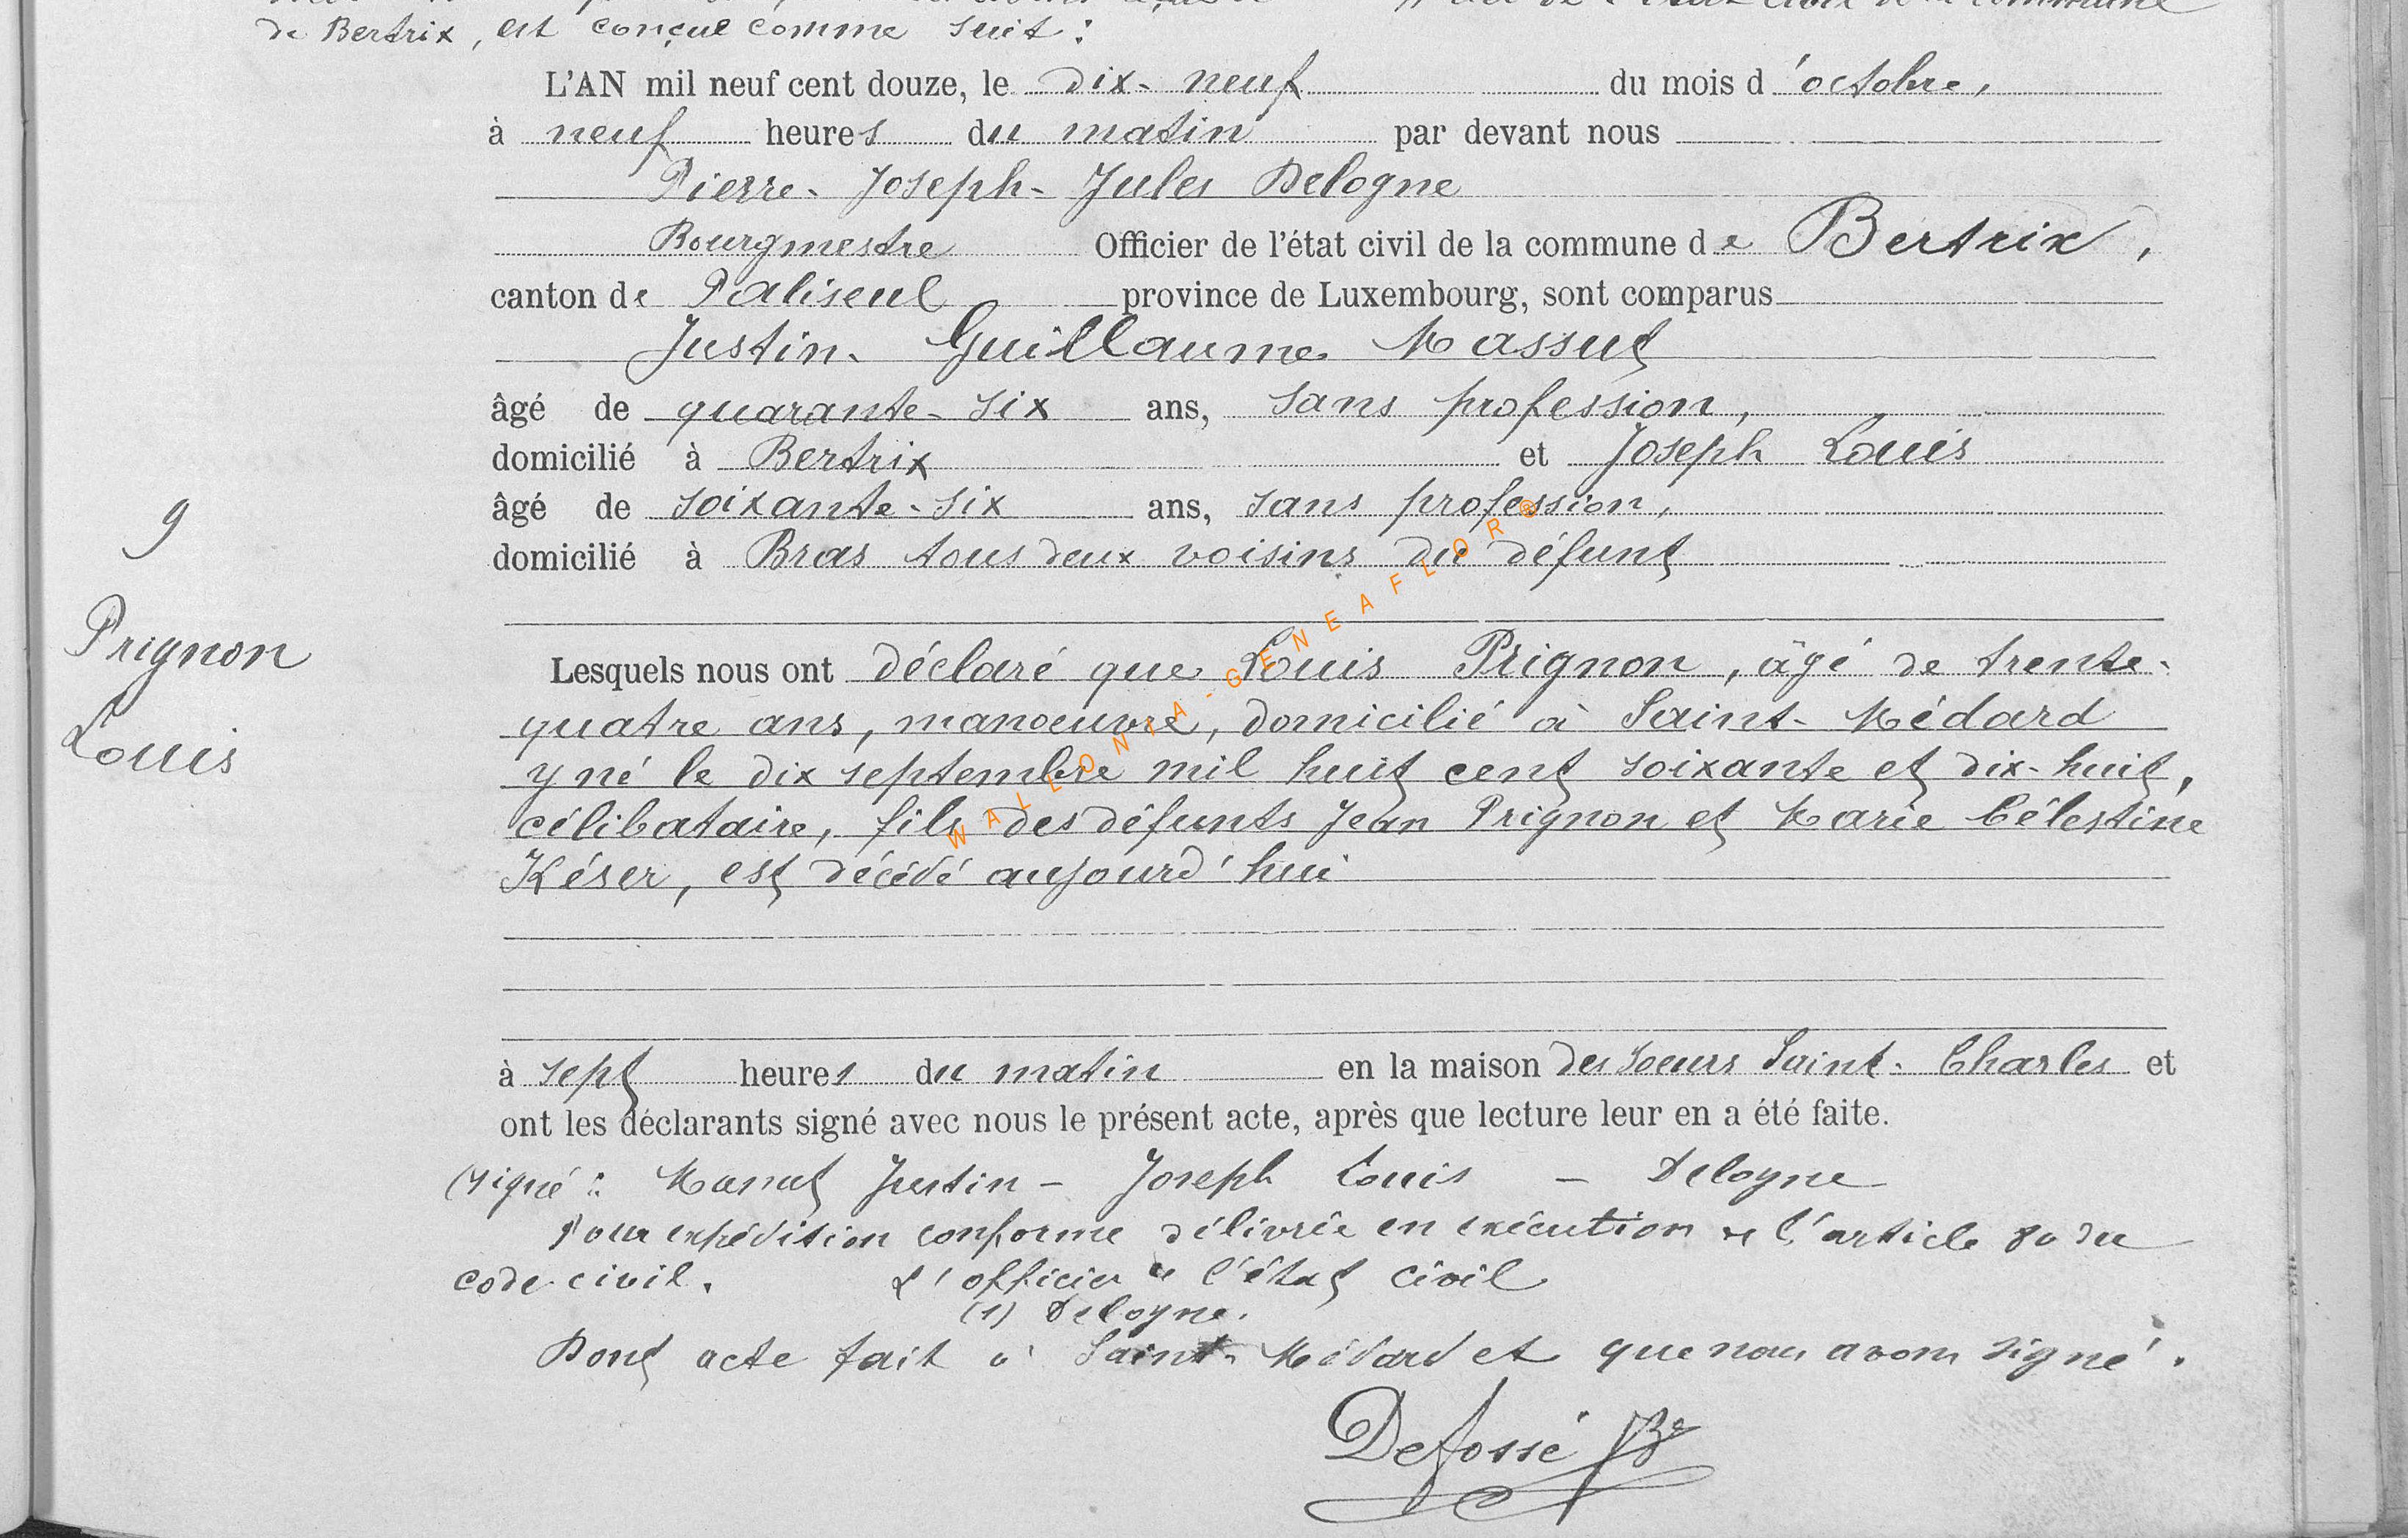 de Bertrix, est conçue comme suit :
L'AN mil neuf cent douze, le dix-neuf du mois d'octobre,
à neuf heures du matin par devant nous
Pierre-Joseph-Jules Delogne
Bourgmestre Officier de l'état civil de la commune de Bertrix,
canton de Paliseul province de Luxembourg, sont comparus
Justin-Guillaume Massut
âgé de quarante-six ans, sans profession,
domicilié à Bertrix et Joseph Louis
âgé de soixante-six ans, sans profession,
domicilié à Bras tous deux voisins du défunt
9
Prignon
Louis
Lesquels nous ont déclaré que Louis Prignon, âgé de trente-
quatre ans, manoeuvre, domicilié à Saint-Médard
y né le dix septembre mil huit cent soixante et dix-huit,
célibataire, fils des défunts Jean Prignon et Marie Célestine
Késer, est décédé aujourd'hui
à sept heures du matin en la maison des soeurs Saint-Charles et
ont les déclarants signé avec nous le présent acte, après que lecture leur en a été faite.
(signé : Massut Justin - Joseph Louis - Delogne
Pour expédition conforme délivrée en exécution de l'article 80 du
code civil. L'officier de l'état civil
(s) Delogne.
Dont acte fait à Saint-Médard et que nous avons signé.
Defossé
WALLONIA-GENEAFLOR®